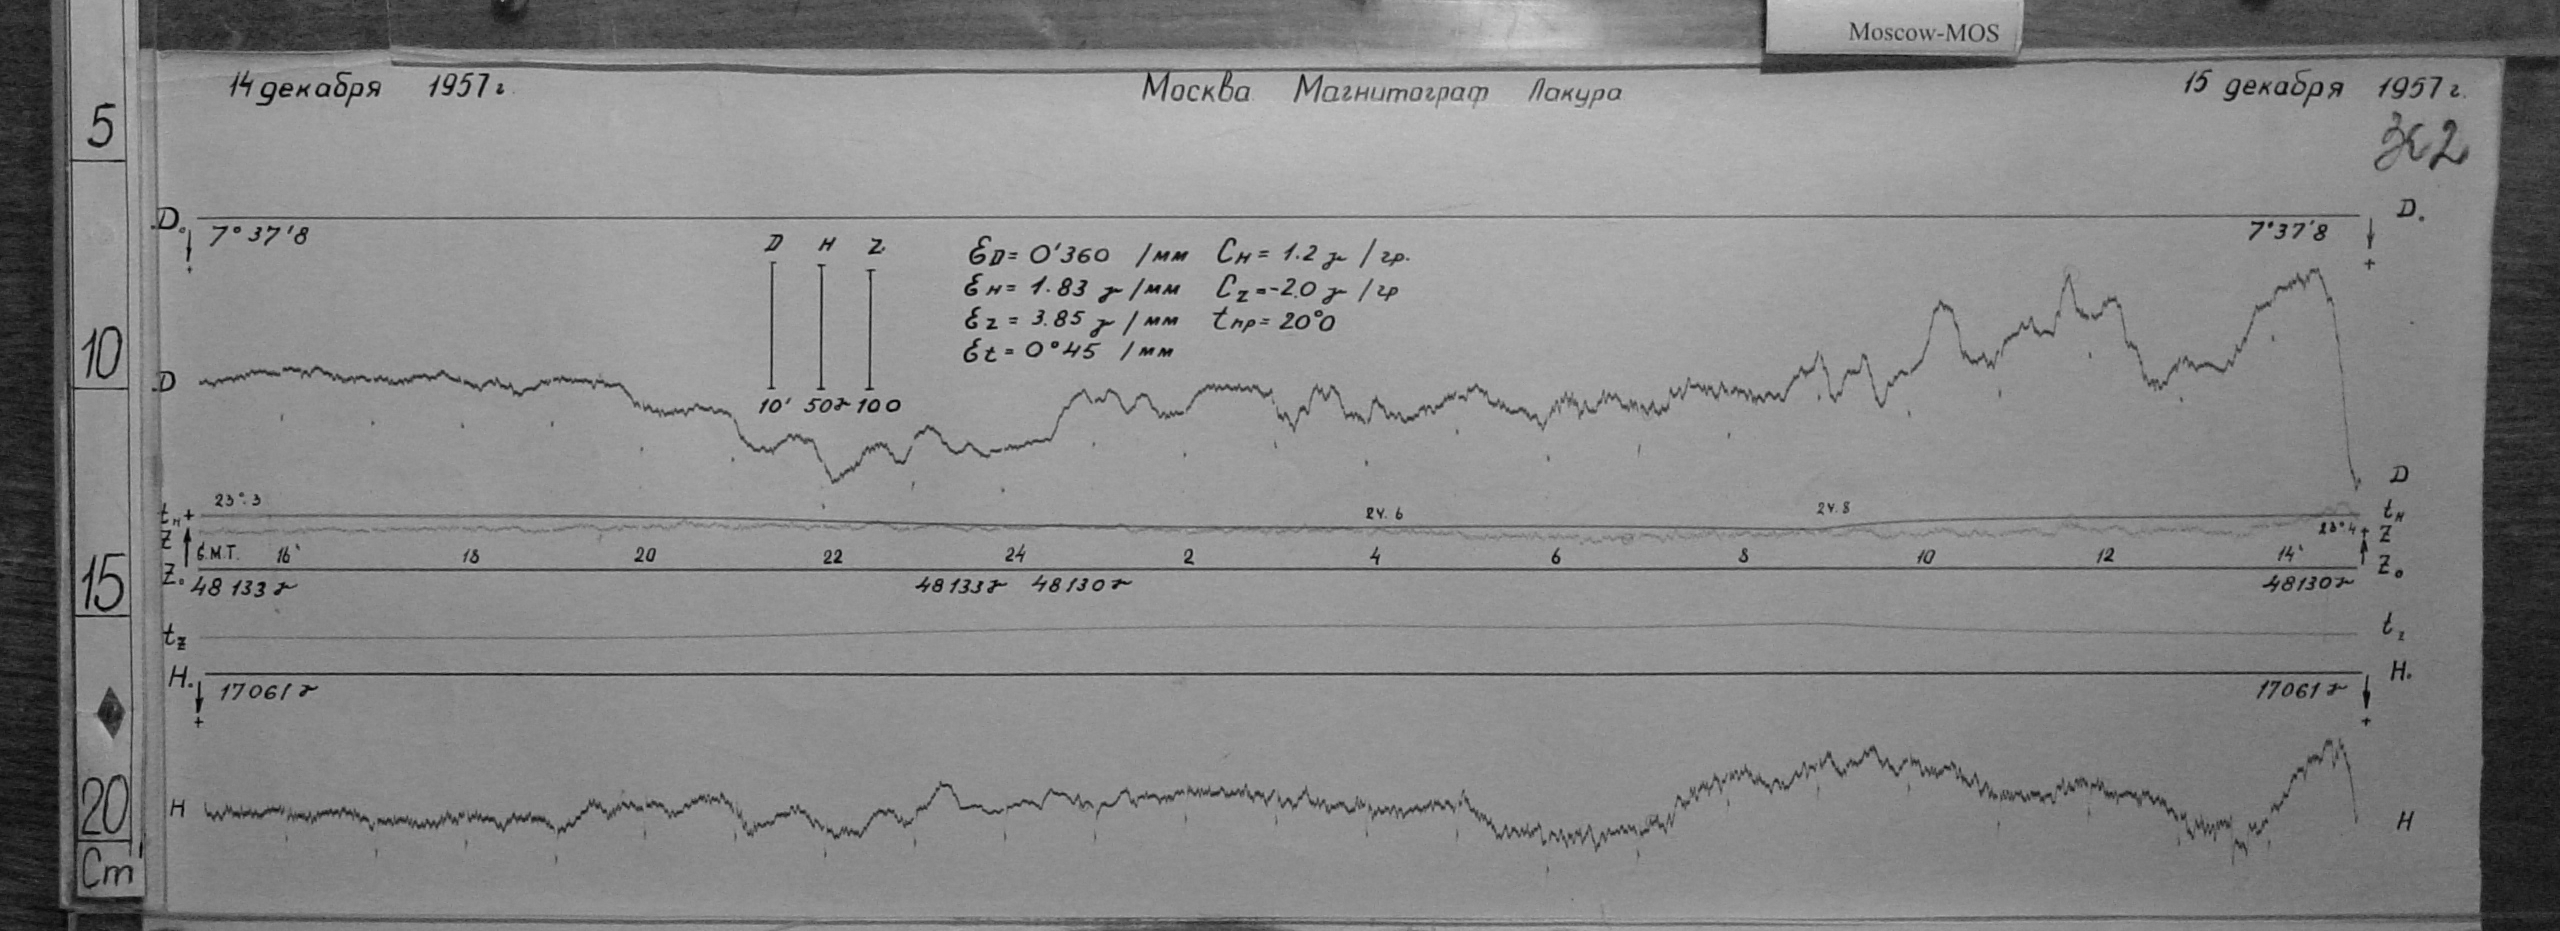 Moscow-MOS
14 декабря 1957 г.
Москва Магнитограф Лакура
15 декабря 1957 г.
5
10
15
20
Cm
D₀
7°37'8
7°37'8
D₀
+
+
D H Z
10' 50γ 100
ƐD = 0'360 /мм CH = 1.2 γ / гр.
ƐH = 1.83 γ /мм CZ = -2.0 γ / гр
ƐZ = 3.85 γ /мм tпр = 20°0
Ɛt = 0°45 /мм
D
D
23°.3
24.6
24.8
23°.4
tH +
tH
Z
+ Z
G.M.T. 16' 18 20 22 24 2 4 6 8 10 12 14'
Z₀
Z₀
48133γ 48133γ 48130γ 48130γ
tZ
tZ
H₀
H₀
17061γ
17061γ
+
+
H
H